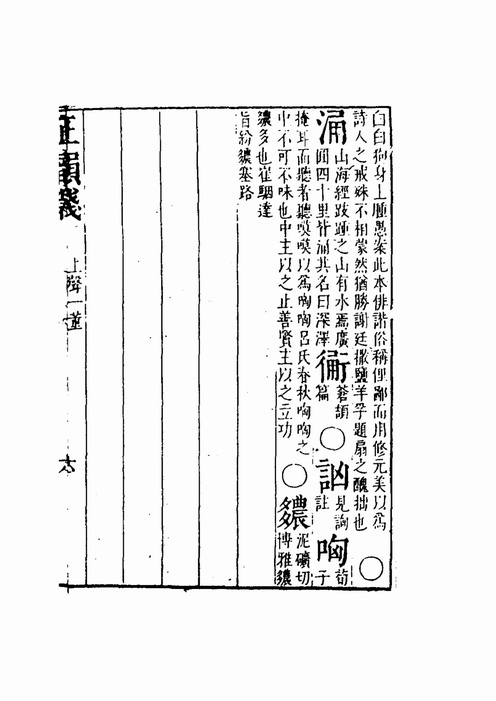 白白狗身上腫愚案此本俳諧俗稱俚鄙而用修元美以爲
詩人之戒殊不相蒙然猶勝謝廷撒鹽羊孚題扇之醜拙也○
涌山海經跂踵之山有水焉廣
圓四十里皆涌其名曰深澤衕蒼頡
篇○訩見詢
註哅荀
子
掩耳而聽者聽嘆嘆以爲哅哅呂氏春秋哅哅之
中不可不味也中主以之止善賢主以之立功○繷泥礦切
博雅繷
繷多也崔駰達
旨紛繷塞路
正韻箋
上聲一董
六